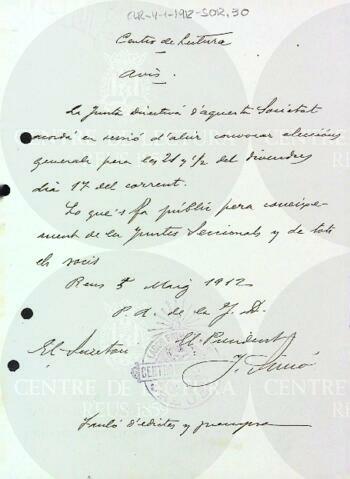 CLR-4-1-1912-SOR, 30
Centro de Lectura
Avis.
La Junta Directiva d'aquesta Societat
acordá en sessió d'ahir convocar eleccións
generals pera las 21 y 1/2 del divendres
dia 17 del corrent.
Lo que's fa públic pera coneixe-
ment de las Juntas Seccionals y de tots
els socis
Reus 5 Maig 1912
P. A. de la J. D.
El President
El Secretari
J. Simó
Tauló d'edictes y premsa
CENTRE DE LECTURA
REUS 1859